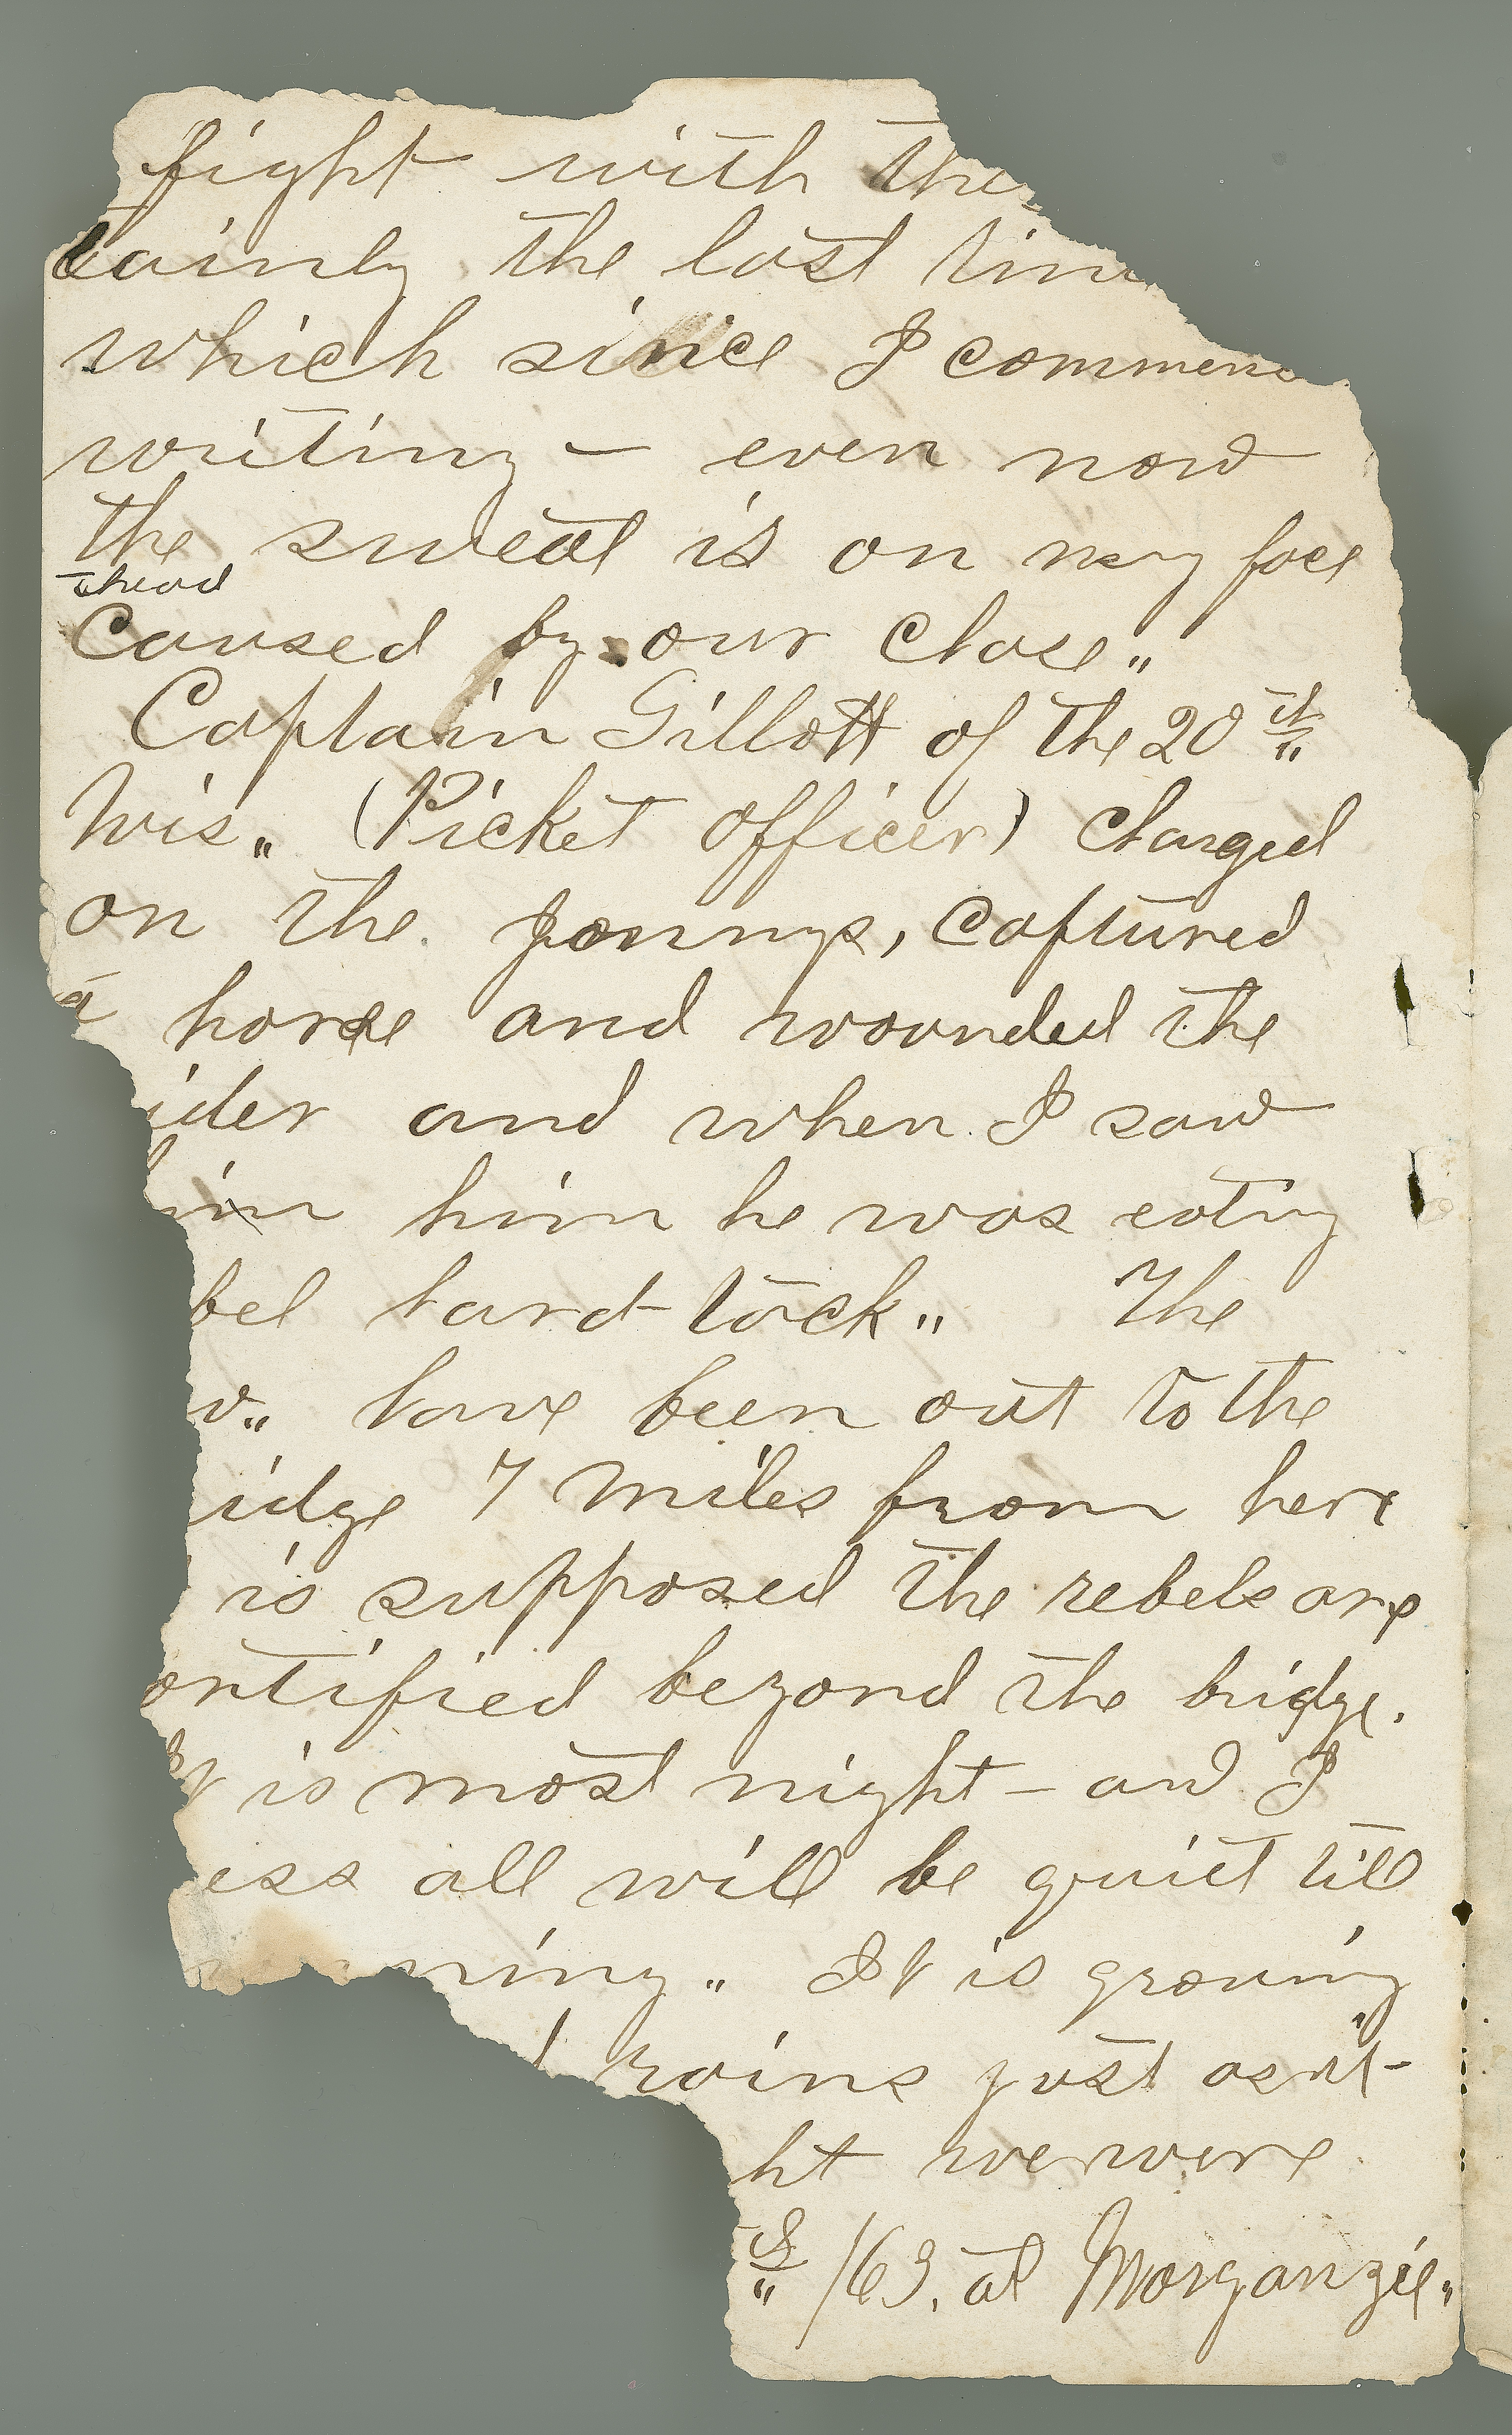 fight with the
tainly the last time
which since I commenc
writing — even now
the sweat is on my face
& head
caused by our chase„
Captain Gillott of the 20th„
Wis„ (Picket officer) charged
on the Jonnys, captured
a horse and wounded the
ider and when I saw
him him he was eating
bel hard-tack„ The
v„ have been out to the
idge 7 miles from here
is supposed the rebels are
ortified beyond the bridge.
It is most night — and I
ess all will be quiet till
rning„ It is growing
rains just as it
ht we were
th„ /63. at Morganzie„